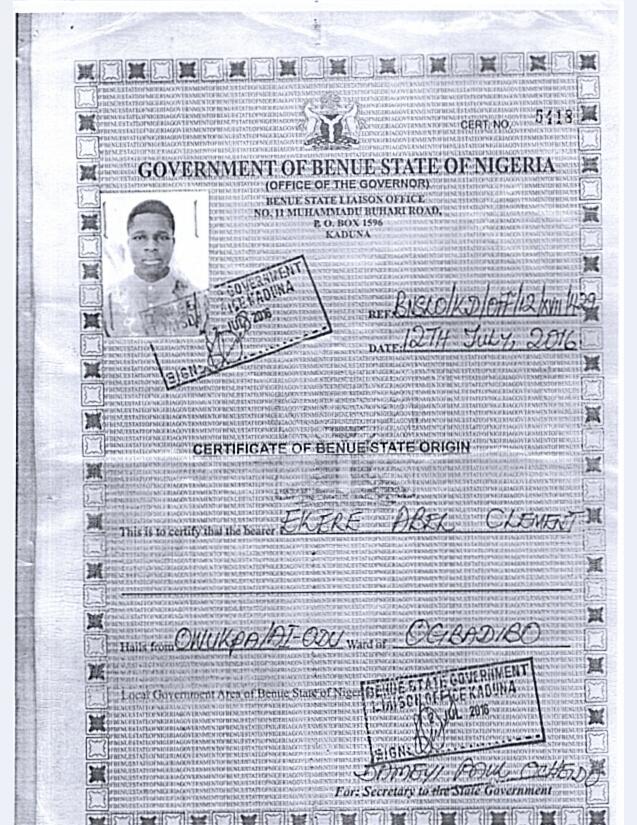 CERT. NO. 5418
GOVERNMENT OF BENUE STATE OF NIGERIA
(OFFICE OF THE GOVERNOR)
BENUE STATE LIAISON OFFICE
NO. 11 MUHAMMADU BUHARI ROAD,
P. O. BOX 1596
KADUNA
GOVERNMENT
KADUNA
JUL 2016
SIGN:
REF:
DATE: 12TH July, 2016
CERTIFICATE OF BENUE STATE ORIGIN
This is to certify that the bearer EKERE ABEL CLEMENT
Hails from OWUKPA/AI-ODU Ward of OGBADIBO
Local Government Area of Benue State of Nigeria
BENUE STATE GOVERNMENT
LIAISON OFFICE KADUNA
JUL 2016
SIGN:
For: Secretary to the State Government